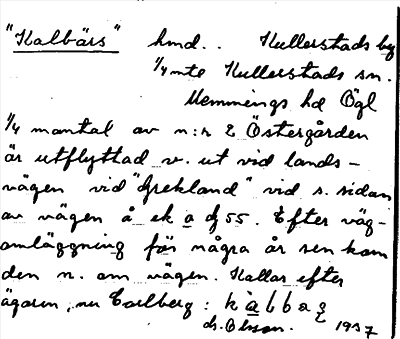 "Kalbärs" hmd.. Kullerstads by
1/4 mte Kullerstads sn.
Memmings hd Ögl
1/4 mantal av n:r 2 Östergården
är utflyttad v. ut vid lands-
vägen vid "Grekland" vid s. sidan
av vägen å ek a df 55. Efter väg-
omläggning för några år sen kom
den n. om vägen. Kallas efter
ägaren, nu Carlberg:
dr. Olsson. 1937